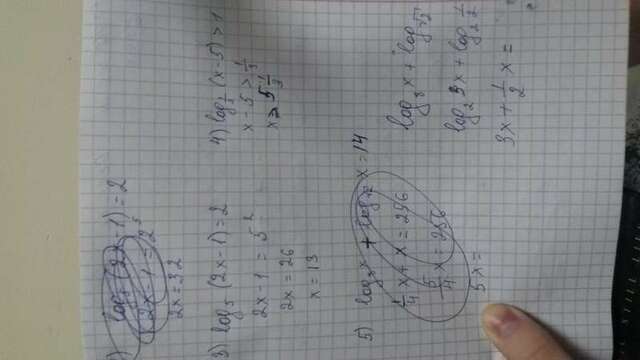 log₅ (2x-1) = 2
2x - 1 = 2⁵
2x = 32
3) log₅ (2x-1) = 2
2x - 1 = 5²
2x = 26
x = 13
4) log_{1/3} (x-5) > 1
x - 5 > 1/3
x > 5 1/3
5) log₈ x + log x = 14
1/4 x + x = 256
5/4 x = 256
5x =
log₈ x + log_{√2}
log₂ 3x + log₂ 1/2
3x + 1/2 x =